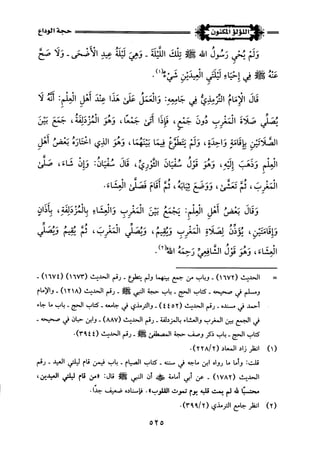 اللؤلؤ المكنون
حجة الوداع
وَلَمْ يُحْيِ رَسُولُ اللهِ ﷺ تِلْكَ اللَّيْلَةَ - وَهِيَ لَيْلَةُ عِيدِ الْأَضْحَى - وَلَا صَحَّ
عَنْهُ ﷺ فِي إِحْيَاءِ لَيْلَتَيِ الْعِيدَيْنِ شَيْءٌ(١).
قَالَ الْإِمَامُ التِّرْمِذِيُّ فِي جَامِعِهِ: وَالْعَمَلُ عَلَى هَذَا عِنْدَ أَهْلِ الْعِلْمِ: أَنَّهُ لَا
يُصَلِّي صَلَاةَ الْمَغْرِبِ دُونَ جَمْعٍ، فَإِذَا أَتَى جَمْعًا، وَهُوَ الْمُزْدَلِفَةُ، جَمَعَ بَيْنَ
الصَّلَاتَيْنِ بِإِقَامَةٍ وَاحِدَةٍ، وَلَمْ يَتَطَوَّعْ فِيمَا بَيْنَهُمَا، وَهُوَ الذِي اخْتَارَهُ بَعْضُ أَهْلِ
الْعِلْمِ وَذَهَبَ إِلَيْهِ، وَهُوَ قَوْلُ سُفْيَانَ الثَّوْرِيِّ، قَالَ سُفْيَانُ: وَإِنْ شَاءَ، صَلَّى
الْمَغْرِبَ، ثُمَّ تَعَشَّى، وَوَضَعَ ثِيَابَهُ، ثُمَّ أَقَامَ فَصَلَّى الْعِشَاءَ.
وَقَالَ بَعْضُ أَهْلِ الْعِلْمِ: يَجْمَعُ بَيْنَ الْمَغْرِبِ وَالْعِشَاءِ بِالْمُزْدَلِفَةِ، بِأَذَانٍ
وَإِقَامَتَيْنِ، يُؤَذِّنُ لِصَلَاةِ الْمَغْرِبِ وَيُقِيمُ، وَيُصَلِّي الْمَغْرِبَ، ثُمَّ يُقِيمُ وَيُصَلِّي
الْعِشَاءَ، وَهُوَ قَوْلُ الشَّافِعِيِّ رَحِمَهُ اللهُ(٢).
= الحديث (١١٧٢) - وباب من جمع بينهما ولم يتطوع - رقم الحديث (١١٧٣) (١١٧٤) -
ومسلم في صحيحه - كتاب الحج - باب حجة النبي ﷺ - رقم الحديث (١٢١٨) - والإمام
أحمد في مسنده - رقم الحديث (٤٤٥٢) - والترمذي في جامعه - كتاب الحج - باب ما جاء
في الجمع بين المغرب والعشاء بالمزدلفة - رقم الحديث (٨٨٧) - وابن حبان في صحيحه -
كتاب الحج - باب ذكر وصف حجة المصطفى ﷺ - رقم الحديث (٣٩٤٤).
(١) انظر زاد المعاد (٢٢٨/٢).
قلت: وأما ما رواه ابن ماجه في سننه - كتاب الصيام - باب فيمن قام ليلتي العيد - رقم
الحديث (١٧٨٢) - عن أبي أمامة ﵁ أن النبي ﷺ قال: «من قام ليلتي العيدين،
محتسبًا لله لم يمت قلبه يوم تموت القلوب». فإسناده ضعيف جدًا.
(٢) انظر جامع الترمذي (٣٩٩/٢).
٥٢٥